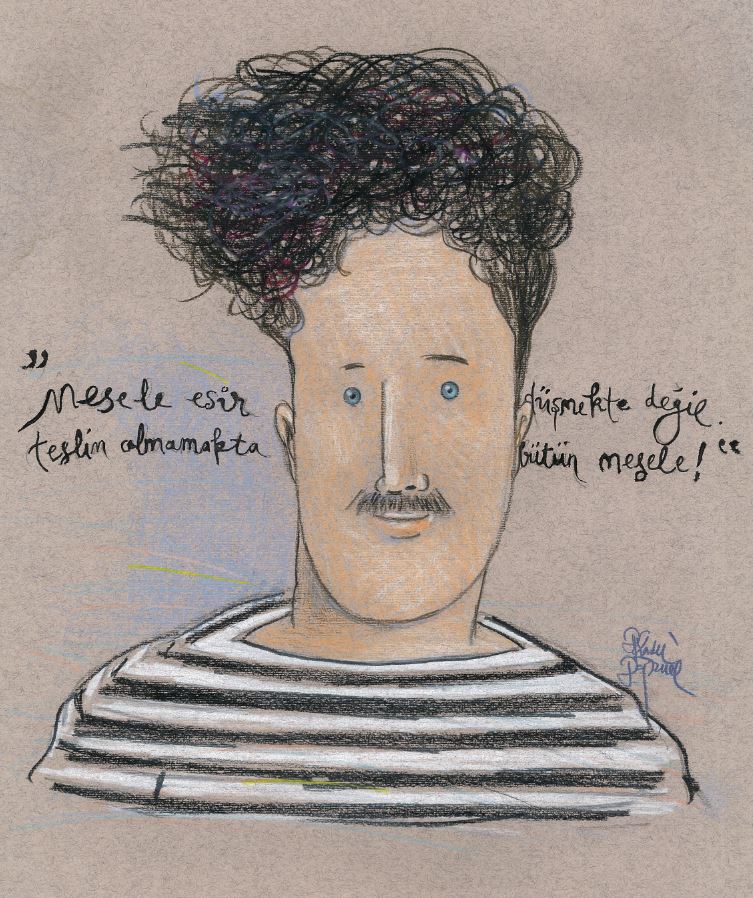 ”Mesele esir düşmekte değil.
teslim olmamakta bütün mesele!“